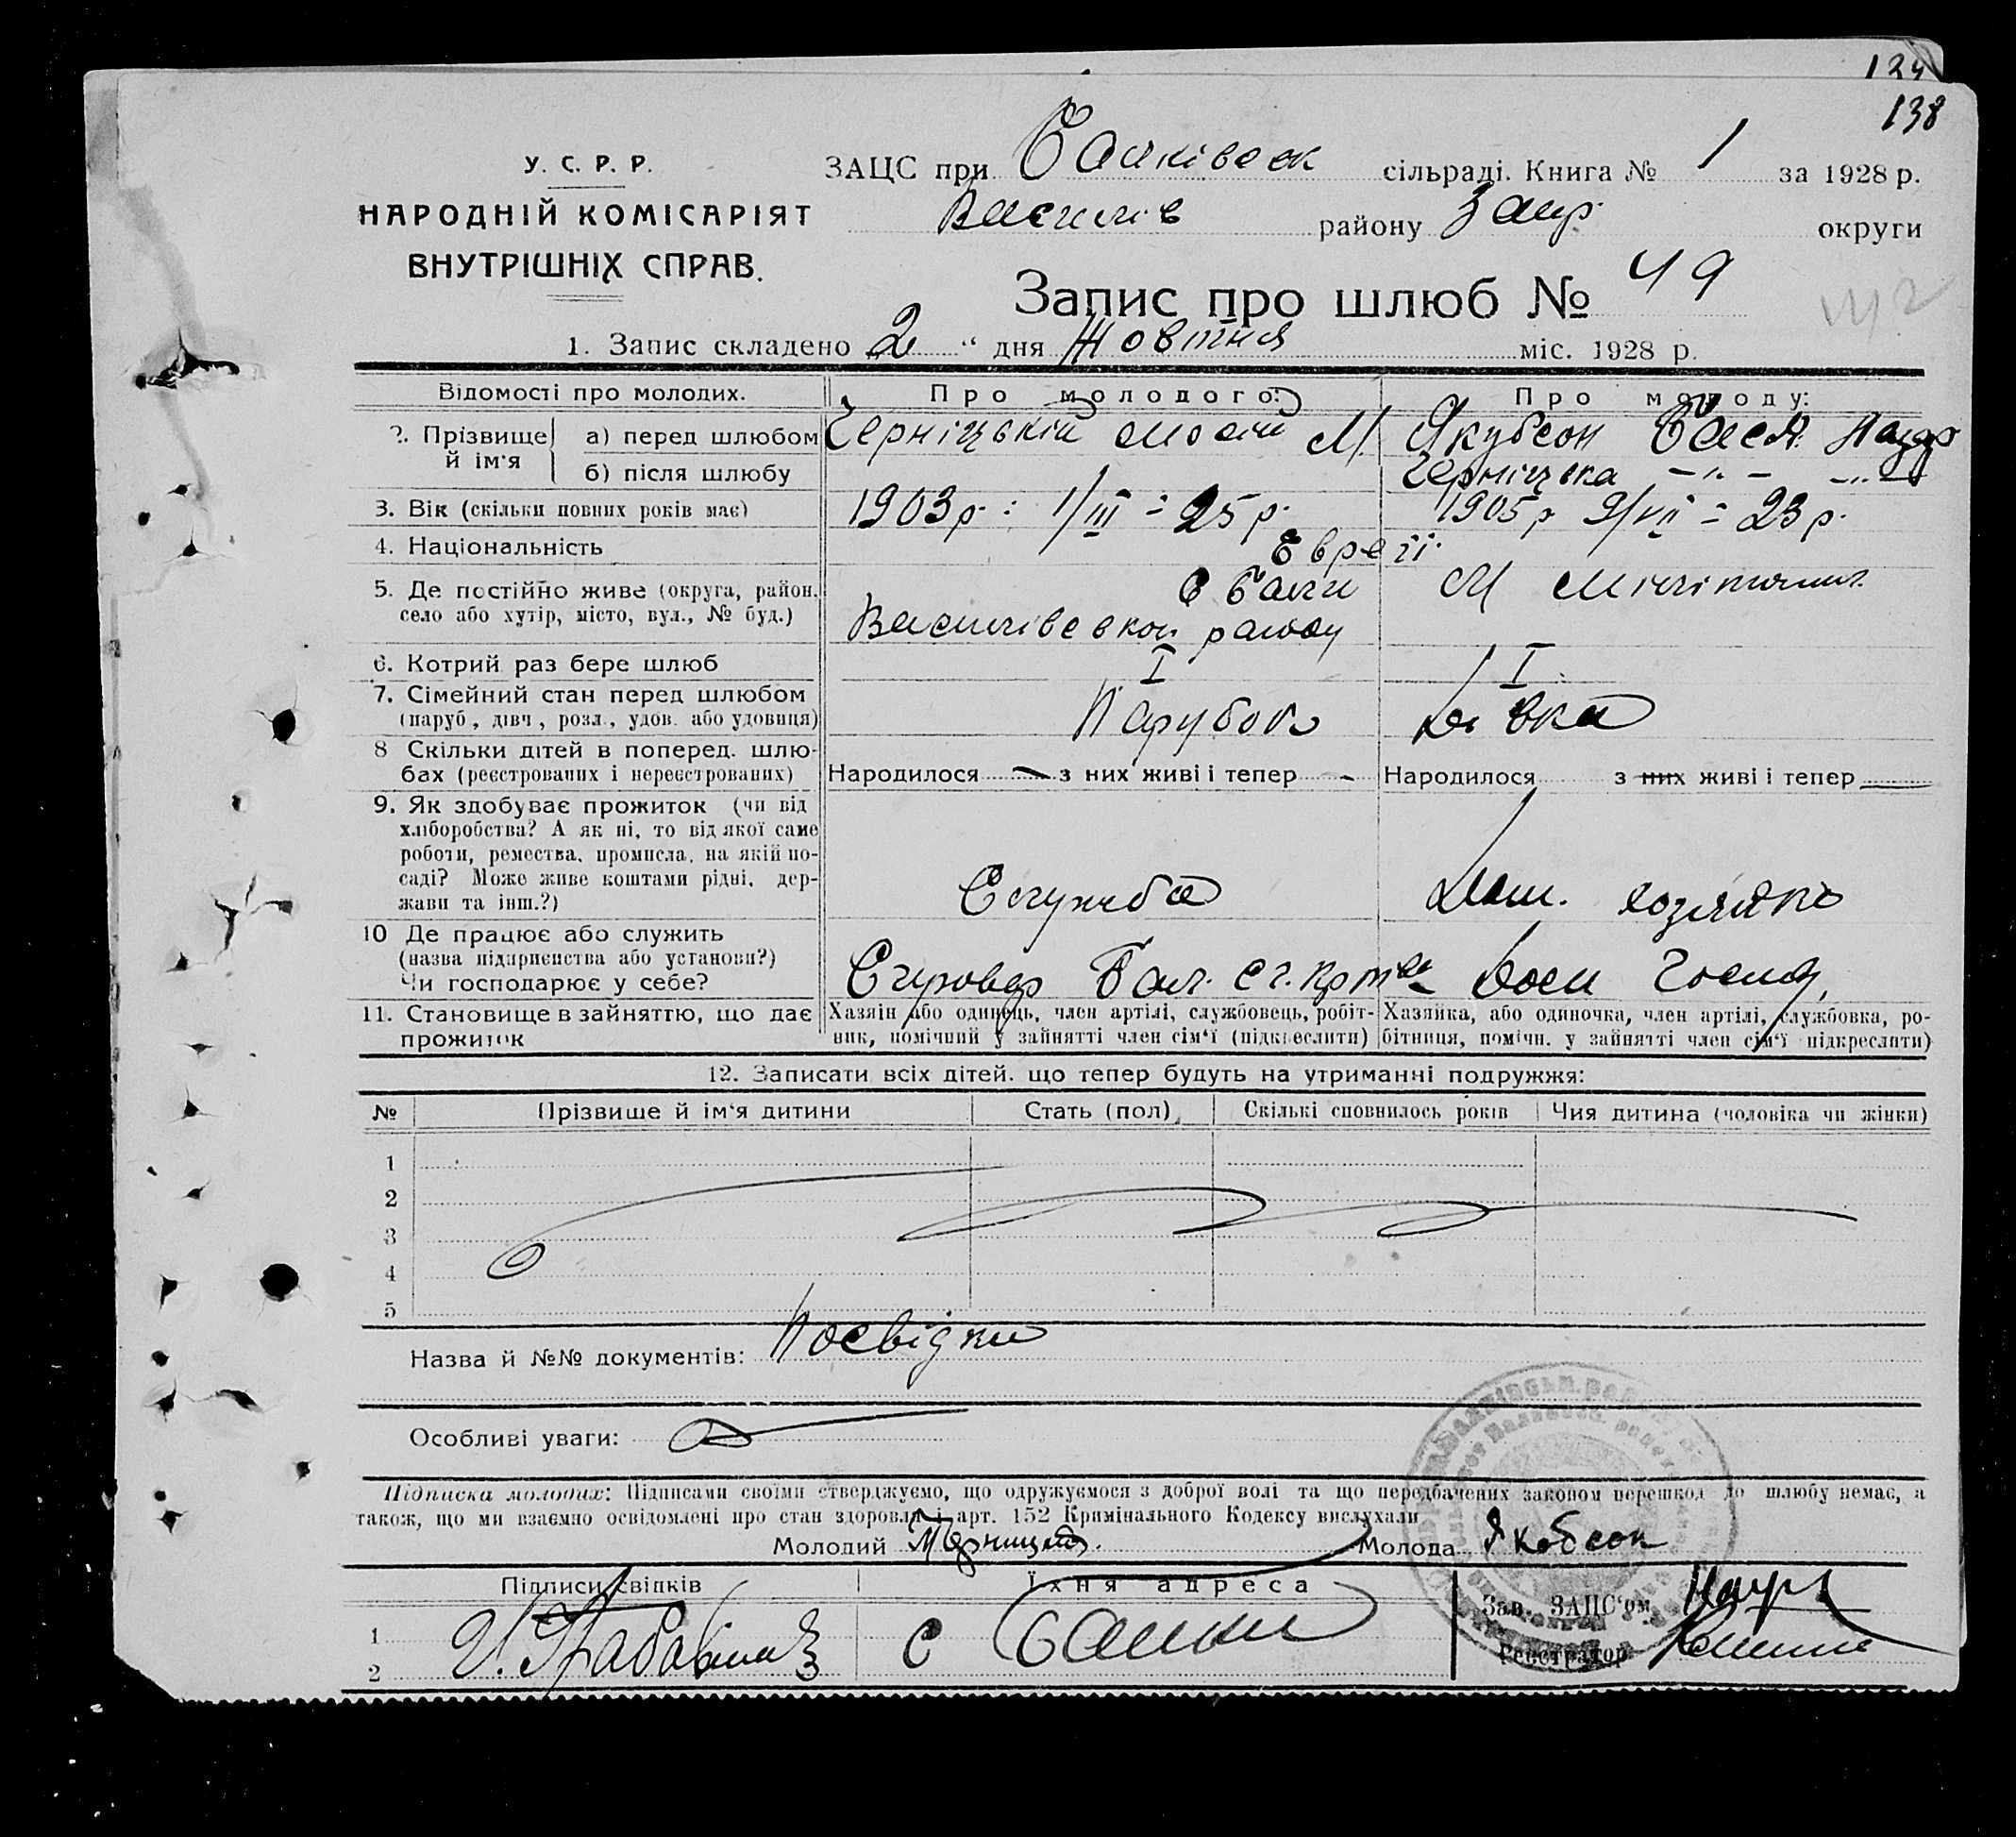 124
138
У. С. Р. Р.
НАРОДНІЙ КОМІСАРІЯТ
ВНУТРІШНІХ СПРАВ.
ЗАЦС при Балківськ сільраді. Книга № 1 за 1928 р.
Василів району Запор. округи
Запис про шлюб № 49
1. Запис складено 2 “ дня Жовтня міс. 1928 р.
Відомості про молодих. Про молодого: Про молоду:
2. Прізвище й ім‘я а) перед шлюбом Черніцькій М. Якубсон Бася
б) після шлюбу Черніцька — „ — — „ —
3. Вік (скільки повних років має) 1903 р. : 1/III = 25 р. 1905 р 9/VII = 23 р.
4. Національність Євреї
5. Де постійно живе (округа, район, село або хутір, місто, вул., № буд.) с Балки М
Василівсвкой району
6. Котрий раз бере шлюб I I
7. Сімейний стан перед шлюбом (паруб., дівч., розл., удов. або удовиця) Парубок Дівка
8 Скільки дітей в поперед. шлюбах (реєстрованих і нереєстрованих) Народилося — з них живі і тепер — Народилося з них живі і тепер —
9. Як здобуває прожиток (чи від
хліборобства? А як ні, то від якої саме
роботи, ремества, промисла, на якій по-
саді? Може живе коштами рідні, дер-
жави та інш.?) Служба Дом. хозяйка
10 Де працює або служить
(назва підприємства або установи?)
Чи господарює у себе? Бал.
11. Становище в зайняттю, що дає прожиток
Хазяін або одинець, член артілі, службовець, робіт-
ник, помічний у зайнятті член сім‘ї (підкреслити)
Хазяйка, або одиночка, член артілі, службовка, ро-
бітниця, помічн. у зайнятті член сім‘ї підкреслити)
12. Записати всіх дітей. що тепер будуть на утриманні подружжя:
№ Прізвище й ім‘я дитини Стать (пол) Скількі сповнилось років Чия дитина (чоловіка чи жінки)
1
2
3
4
5
Назва й №№ документів: Посвідки
Особливі уваги:
Підписка молодих: Підписами своїми стверджуємо, що одружуємося з доброї волі та що передбачених законом перешкод до шлюбу немає, а
також, що ми взаємно освідомлені про стан здоровля і арт. 152 Кримінального Кодексу вислухали
Молодий Молода Якобсон
Підписи свідків Їхня адреса Зав. ЗАЦС‘ом
1 с Балки
2 Реєстратор